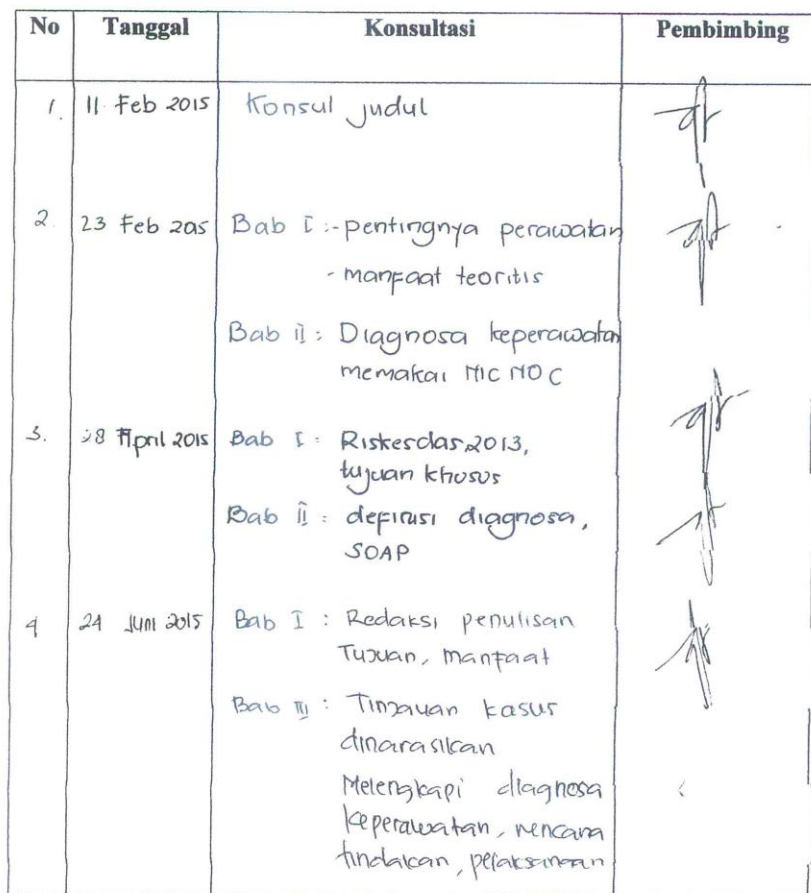 No Tanggal Konsultasi Pembimbing
1. 11 Feb 2015 Konsul judul
2. 23 Feb 2015 Bab I :- pentingnya perawatan
- manfaat teoritis
Bab II : Diagnosa keperawatan
memakai NIC NOC
3. 28 April 2015 Bab I : Riskesdas 2013,
tujuan khusus
Bab II : definisi diagnosa,
SOAP
4 24 Juni 2015 Bab I : Redaksi penulisan
Tujuan, manfaat
Bab III : Tinjauan kasus
dinarasikan
Melengkapi diagnosa
keperawatan, rencana
tindakan, pelaksanaan